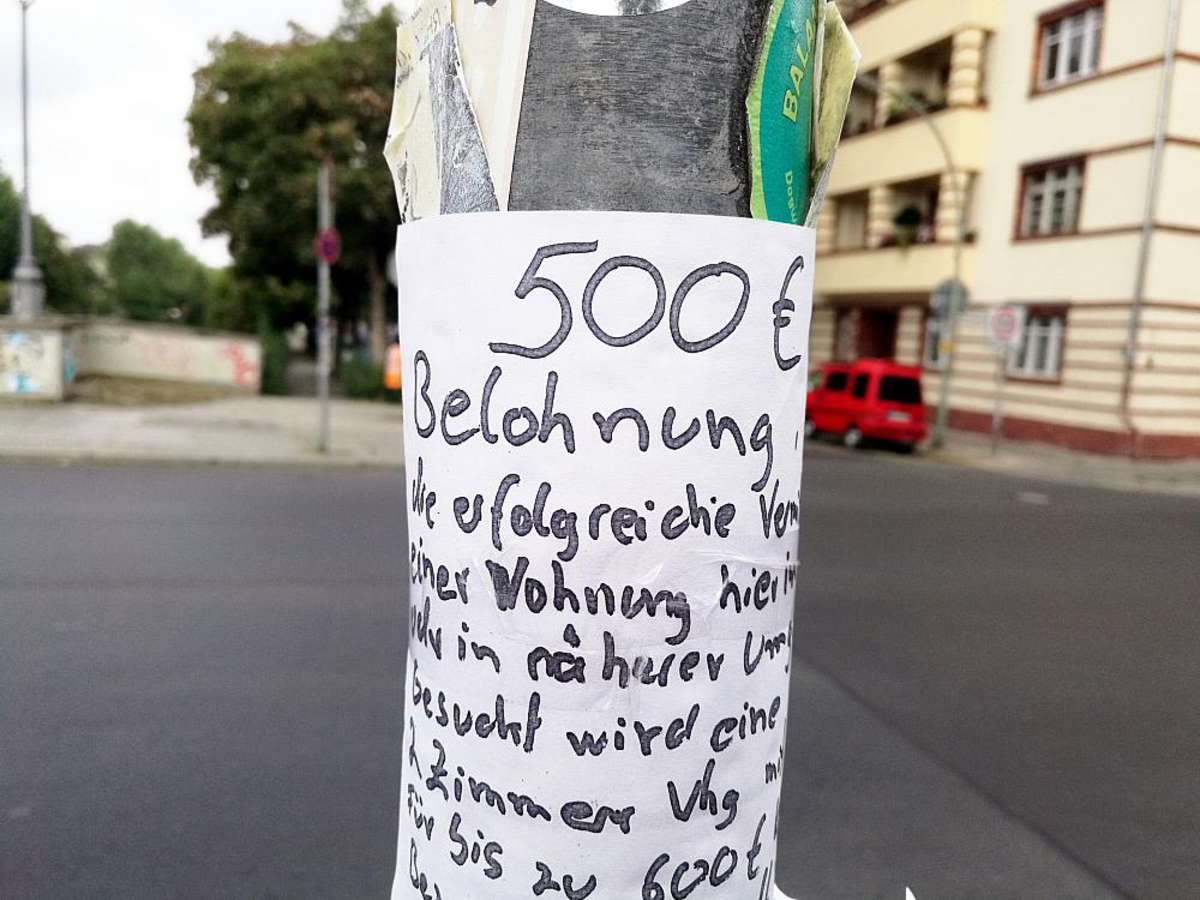 BALA
500 €
Belohnung
die erfolgreiche Verm
einer Wohnung hier in
oder in näherer Umg
Gesucht wird eine
2 Zimmer Whg
für bis zu 600 €
Bez